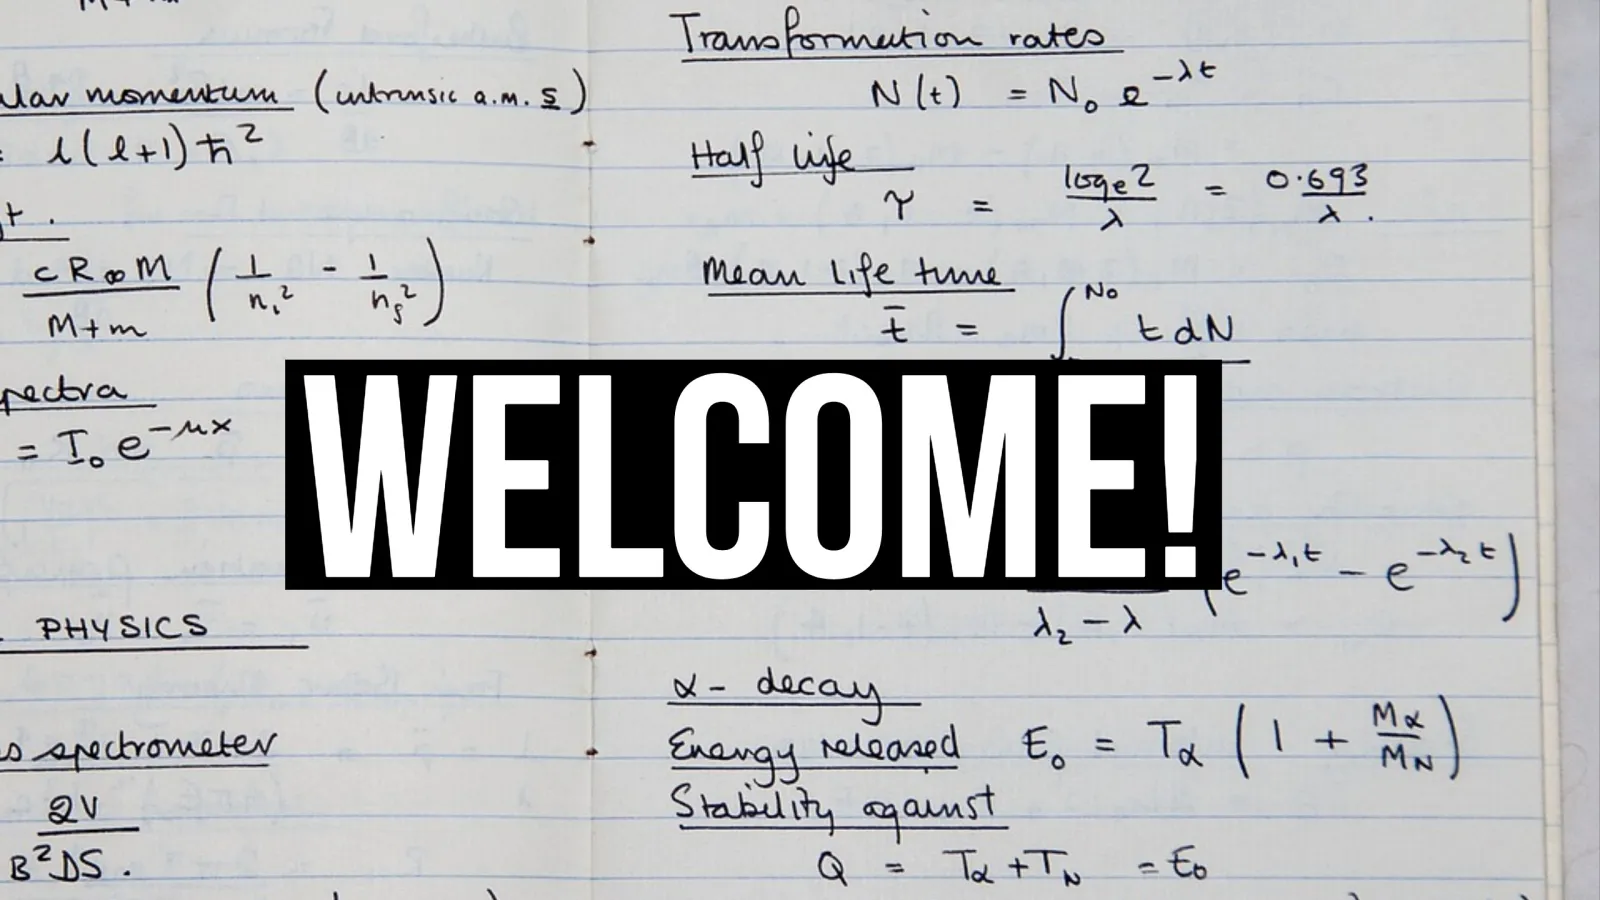 M+m
ular momentum (intrinsic a.m. s)
= l(l+1)ħ²
t.
cR∞M / M+m (1/nᵢ² - 1/n_f²)
pectra
= I₀e^-μx
PHYSICS
s spectrometer
2V
B²DS.
Transformation rates
N(t) = N₀ e^-λt
Half life
τ = logₑ2 / λ = 0.693 / λ.
Mean life time
t̄ = ∫^N₀ t dN
WELCOME!
λ₂ - λ (e^-λ₁t - e^-λ₂t)
α - decay
Energy released E₀ = Tα (1 + Mα / M_N)
Stability against
Q = Tα + T_N = E₀